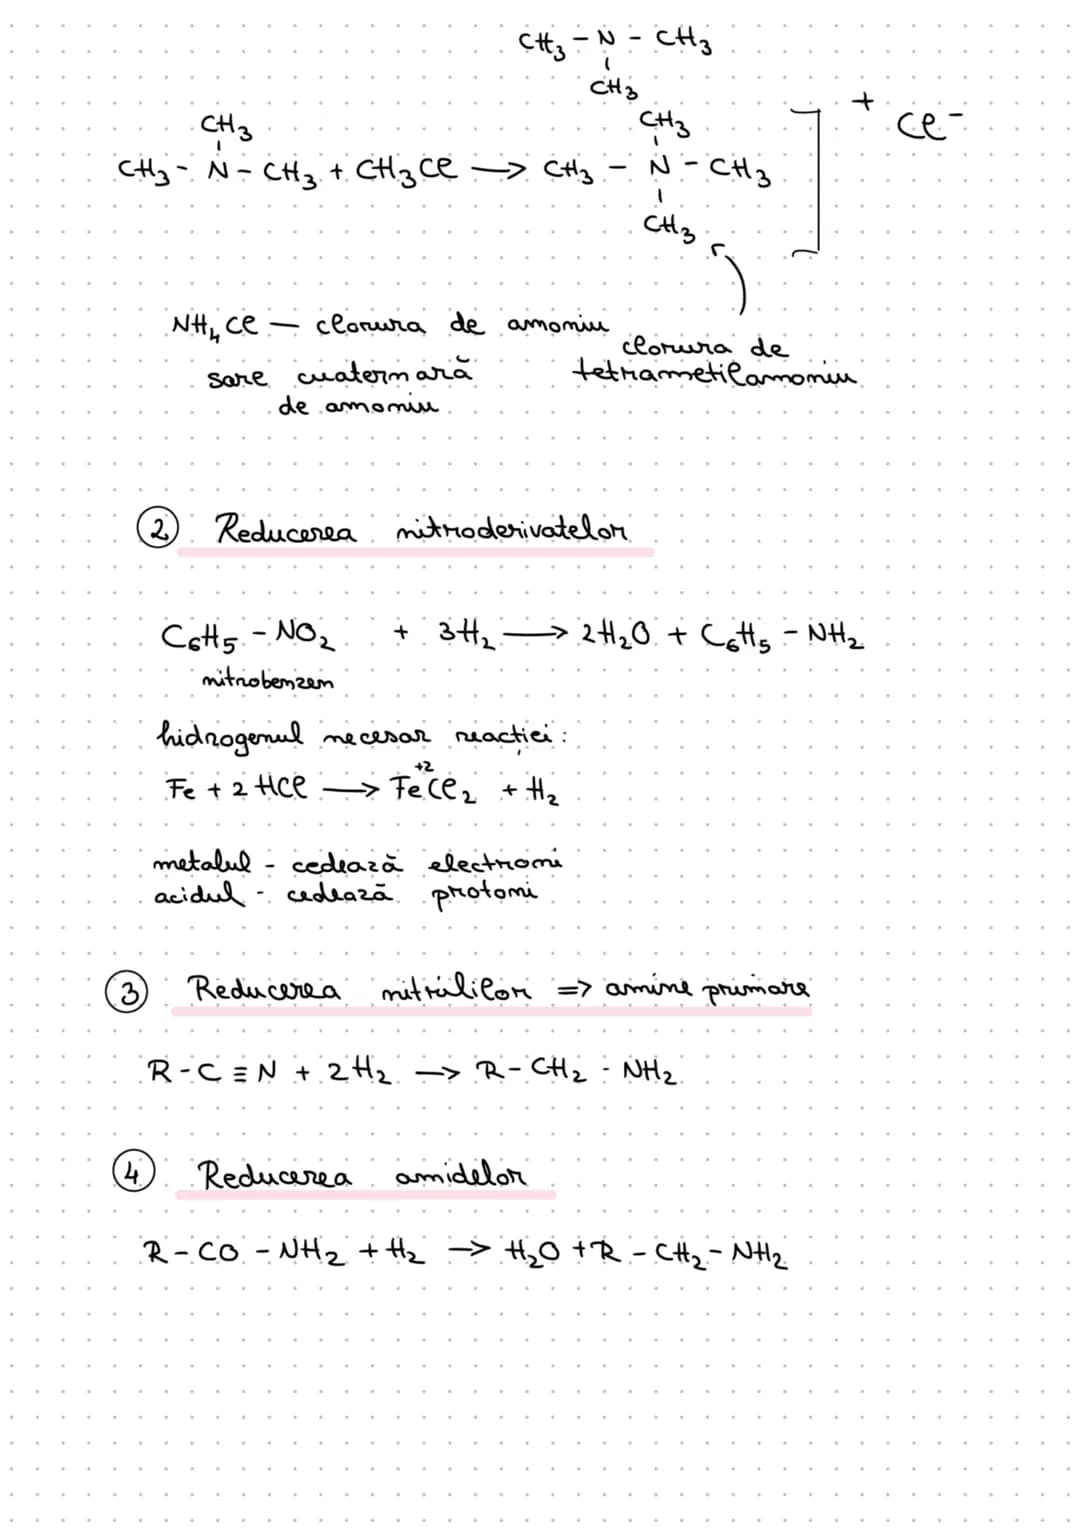 CH3 - N - CH3
CH3
CH3
CH3
+
Cl-
CH3 - N - CH3 + CH3Cl → CH3 - N - CH3
CH3
NH4Cl — clorura de amoniu
clorura de
tetrametilamoniu
sare cuaternară
de amoniu
2 Reducerea nitroderivatelor
C6H5 - NO2 + 3H2 → 2H2O + C6H5 - NH2
nitrobenzen
hidrogenul necesar reacției:
+2
Fe + 2HCl → FeCl2 + H2
metalul - cedează electroni
acidul - cedează protoni
3 Reducerea nitrililor => amine primare
R - C ≡ N + 2H2 → R - CH2 - NH2
4 Reducerea amidelor
R - CO - NH2 + H2 → H2O + R - CH2 - NH2